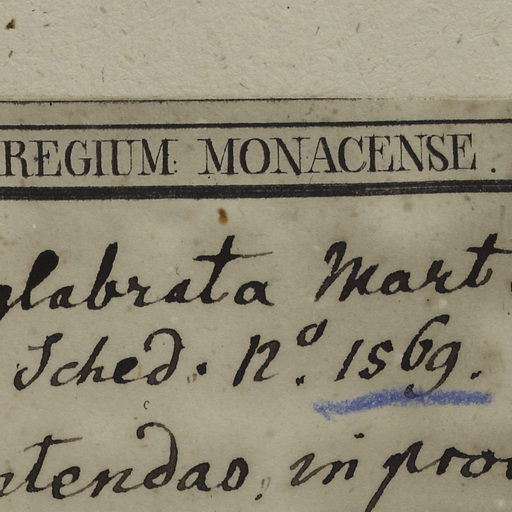 REGIUM MONACENSE.
glabrata Mart.
Sched. No. 1569.
ntendas, in prov